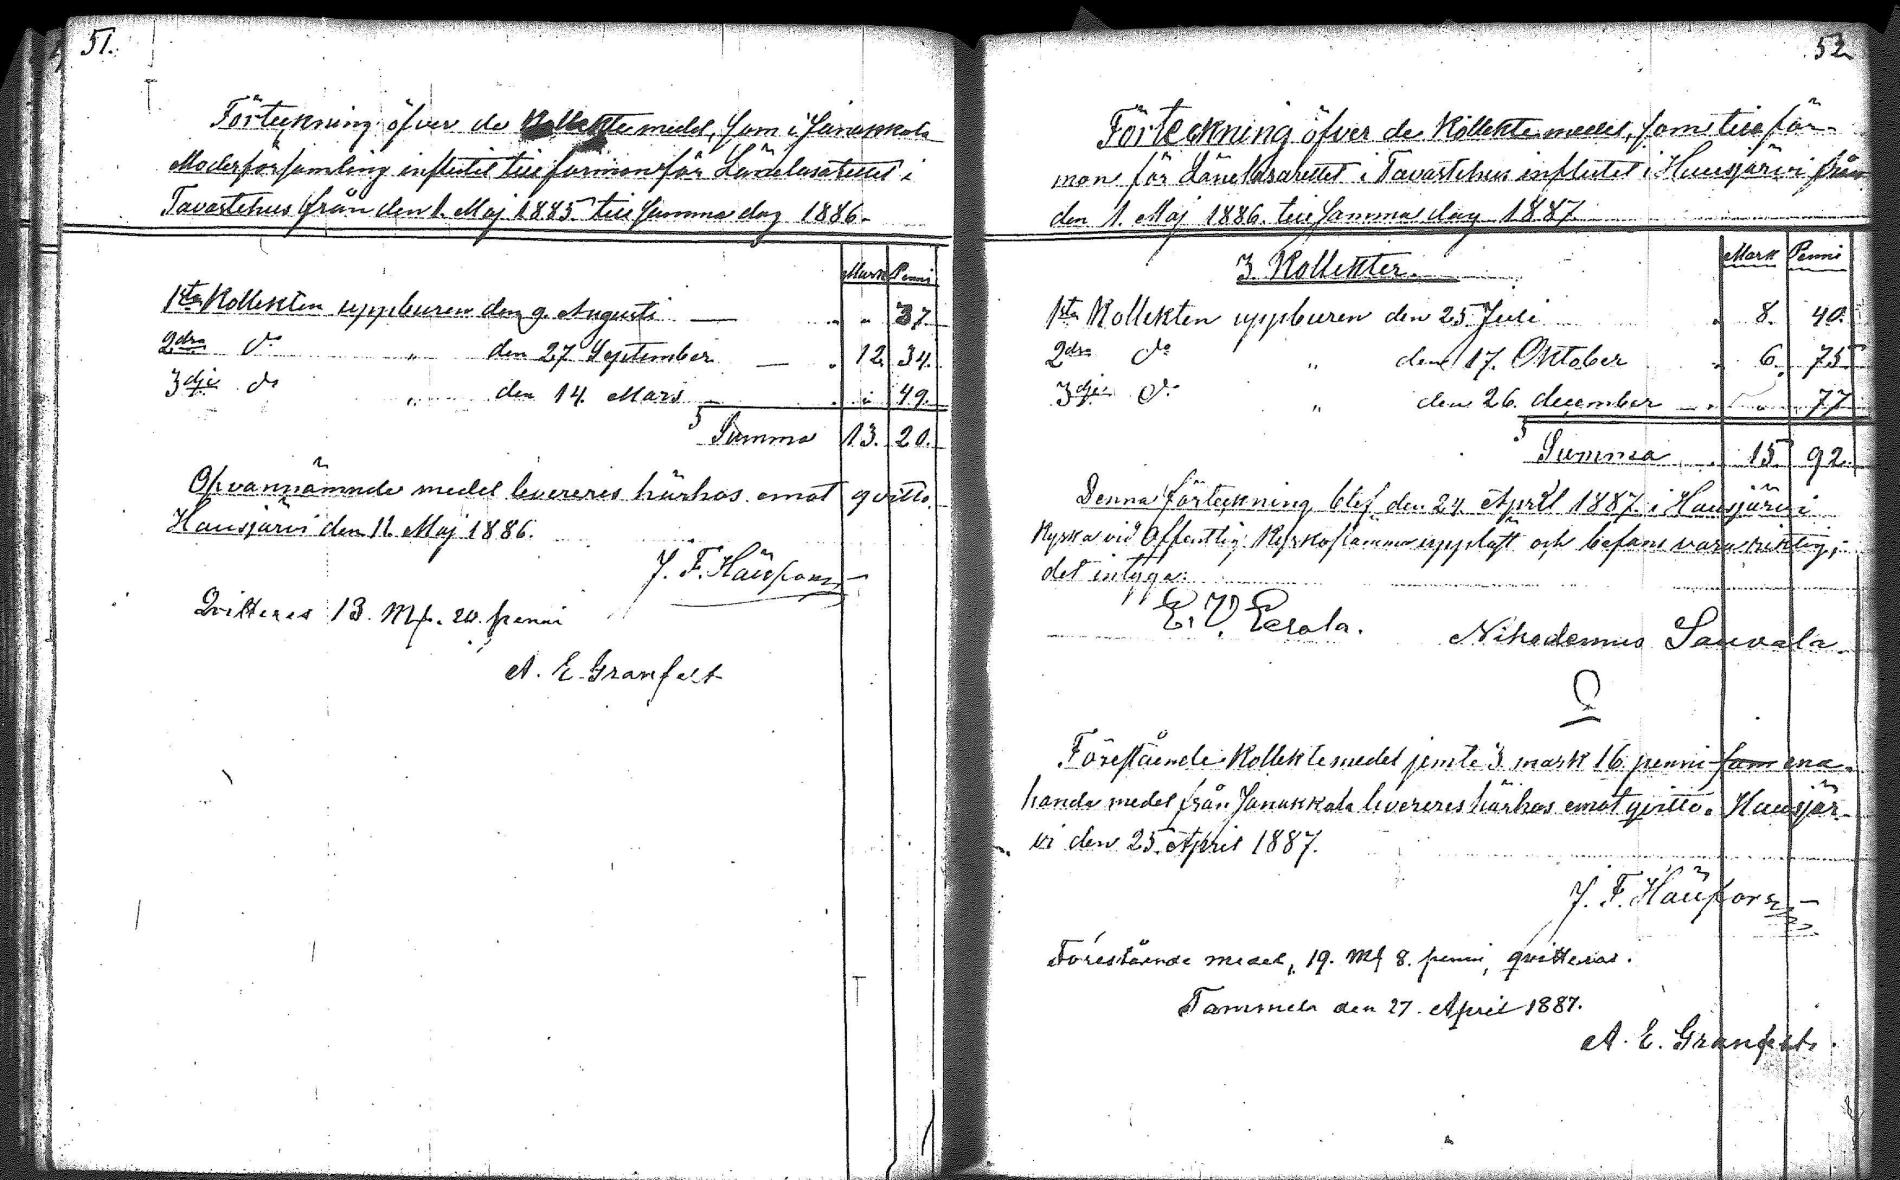 51.
Förteckning öfver de Kollektemedel, som i Janakkala
Moderförsamling influtit till förmon för Länelasarettet i
Tavastehus från den 1. Maj 1885 till samma dag 1886.
Mark Penni
1sta Kollekten uppburen den 9. Augusti — „ „ 37.
2dra do „ den 27 September — „ 12. 34.
3dje do „ den 14. Mars — „ „ 49.
Summa 13. 20.
Ofvannämnde medel levereres härhos emot qvitto.
Hausjärvi den 11. Maj 1886.
J. F.
Qvitteras 13. Mk. 20. penni
A. E. Granfelt
52
Förteckning öfver de Kollektemedel, som till för-
mon för Länelasarettet i Tavastehus influtit i Hausjärvi från
den 1. Maj 1886. till samma dag 1887.
Mark Penni
3 Kollekter.
1sta Kollekten uppburen den 25 Juli „ 8. 40.
2dra do „ den 17. Oktober „ 6. 75
3dje do „ den 26. december — „ „ 77
Summa „ 15 92.
Denna förteckning blef den 24. April 1887. i Hausjärvi
Kyrka vid Offentlig Kyrkostämma uppläst och befans vara riktig;
det intyga:
E. V. Eerola. Nikodemus Sauvala.
Förestående Kollektemedel jemte 3 mark 16. penni som ena-
handa medel från Janakkala levereres härhos emot qvitto. Hausjär-
vi den 25. April 1887.
J. F.
Förestående medel, 19. Mk 8. penni, qvitteras.
Tammela den 27. April 1887.
A. E. Granfelt.